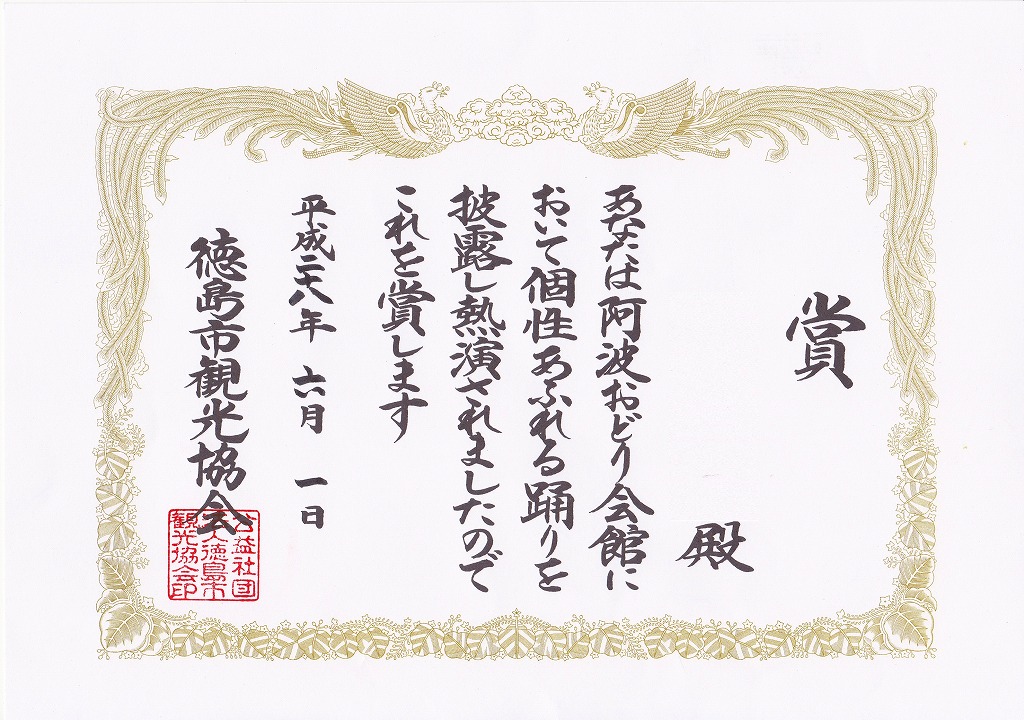 賞
殿
あなたは阿波おどり会館に
おいて個性あふれる踊りを
披露し熱演されましたので
これを賞します
平成二十八年 六月 一日
徳島市観光協会
公益社団
法人徳島市
観光協会印